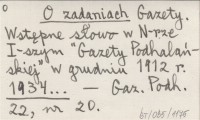 O zadaniach Gazety.
Wstępne słowo w N-rze
I-szym "Gazety Podhalań-
skiej" w grudniu 1912 r.
1934... — Gaz. Podh.
22, nr 20.